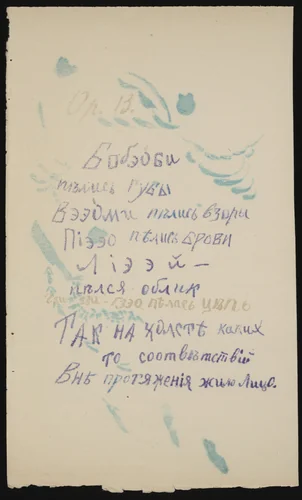 Ор. 13.
Бобэоби
пѣлись губы
Вээоми пѣлись взоры
Піээо пѣлись брови
Ліээй —
пѣлся облик
Гзи-гзи-гзэо пѣлась цѣпь
ТАК НА холстѣ каких
то соотвѣтствій
Внѣ протяженія жило Лицо.